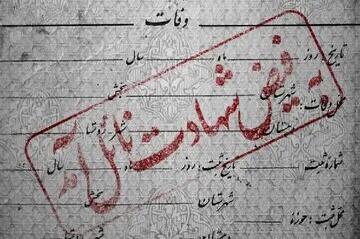 وفات
تاریخ: روز ماه سال
محل وفات: شهرستان بخش
دهستان شهر - روستا
به فیض شهادت نائل آمد
شماره ثبت تاریخ ثبت: روز ماه سال
شهرستان بخش
محل ثبت: حوزه